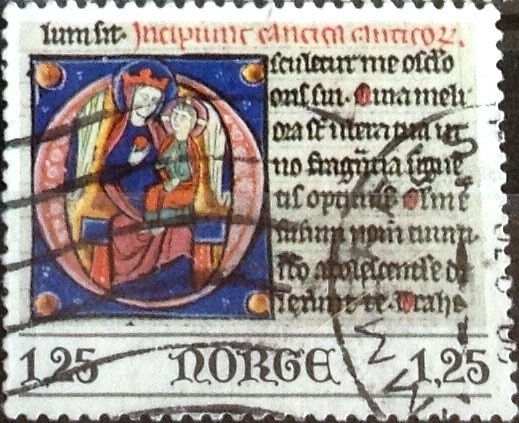 lum sit. Incipiunt cantica canticoꝝ.
sculetur me osculo
oris sui. Quia meli
ora st ubera tua ui
no fragrātia ungue
tis optimis. Oleū e
effusum nomen tuum
adolescentule di
lexerunt te. Trahe
1,25 NORGE 1,25